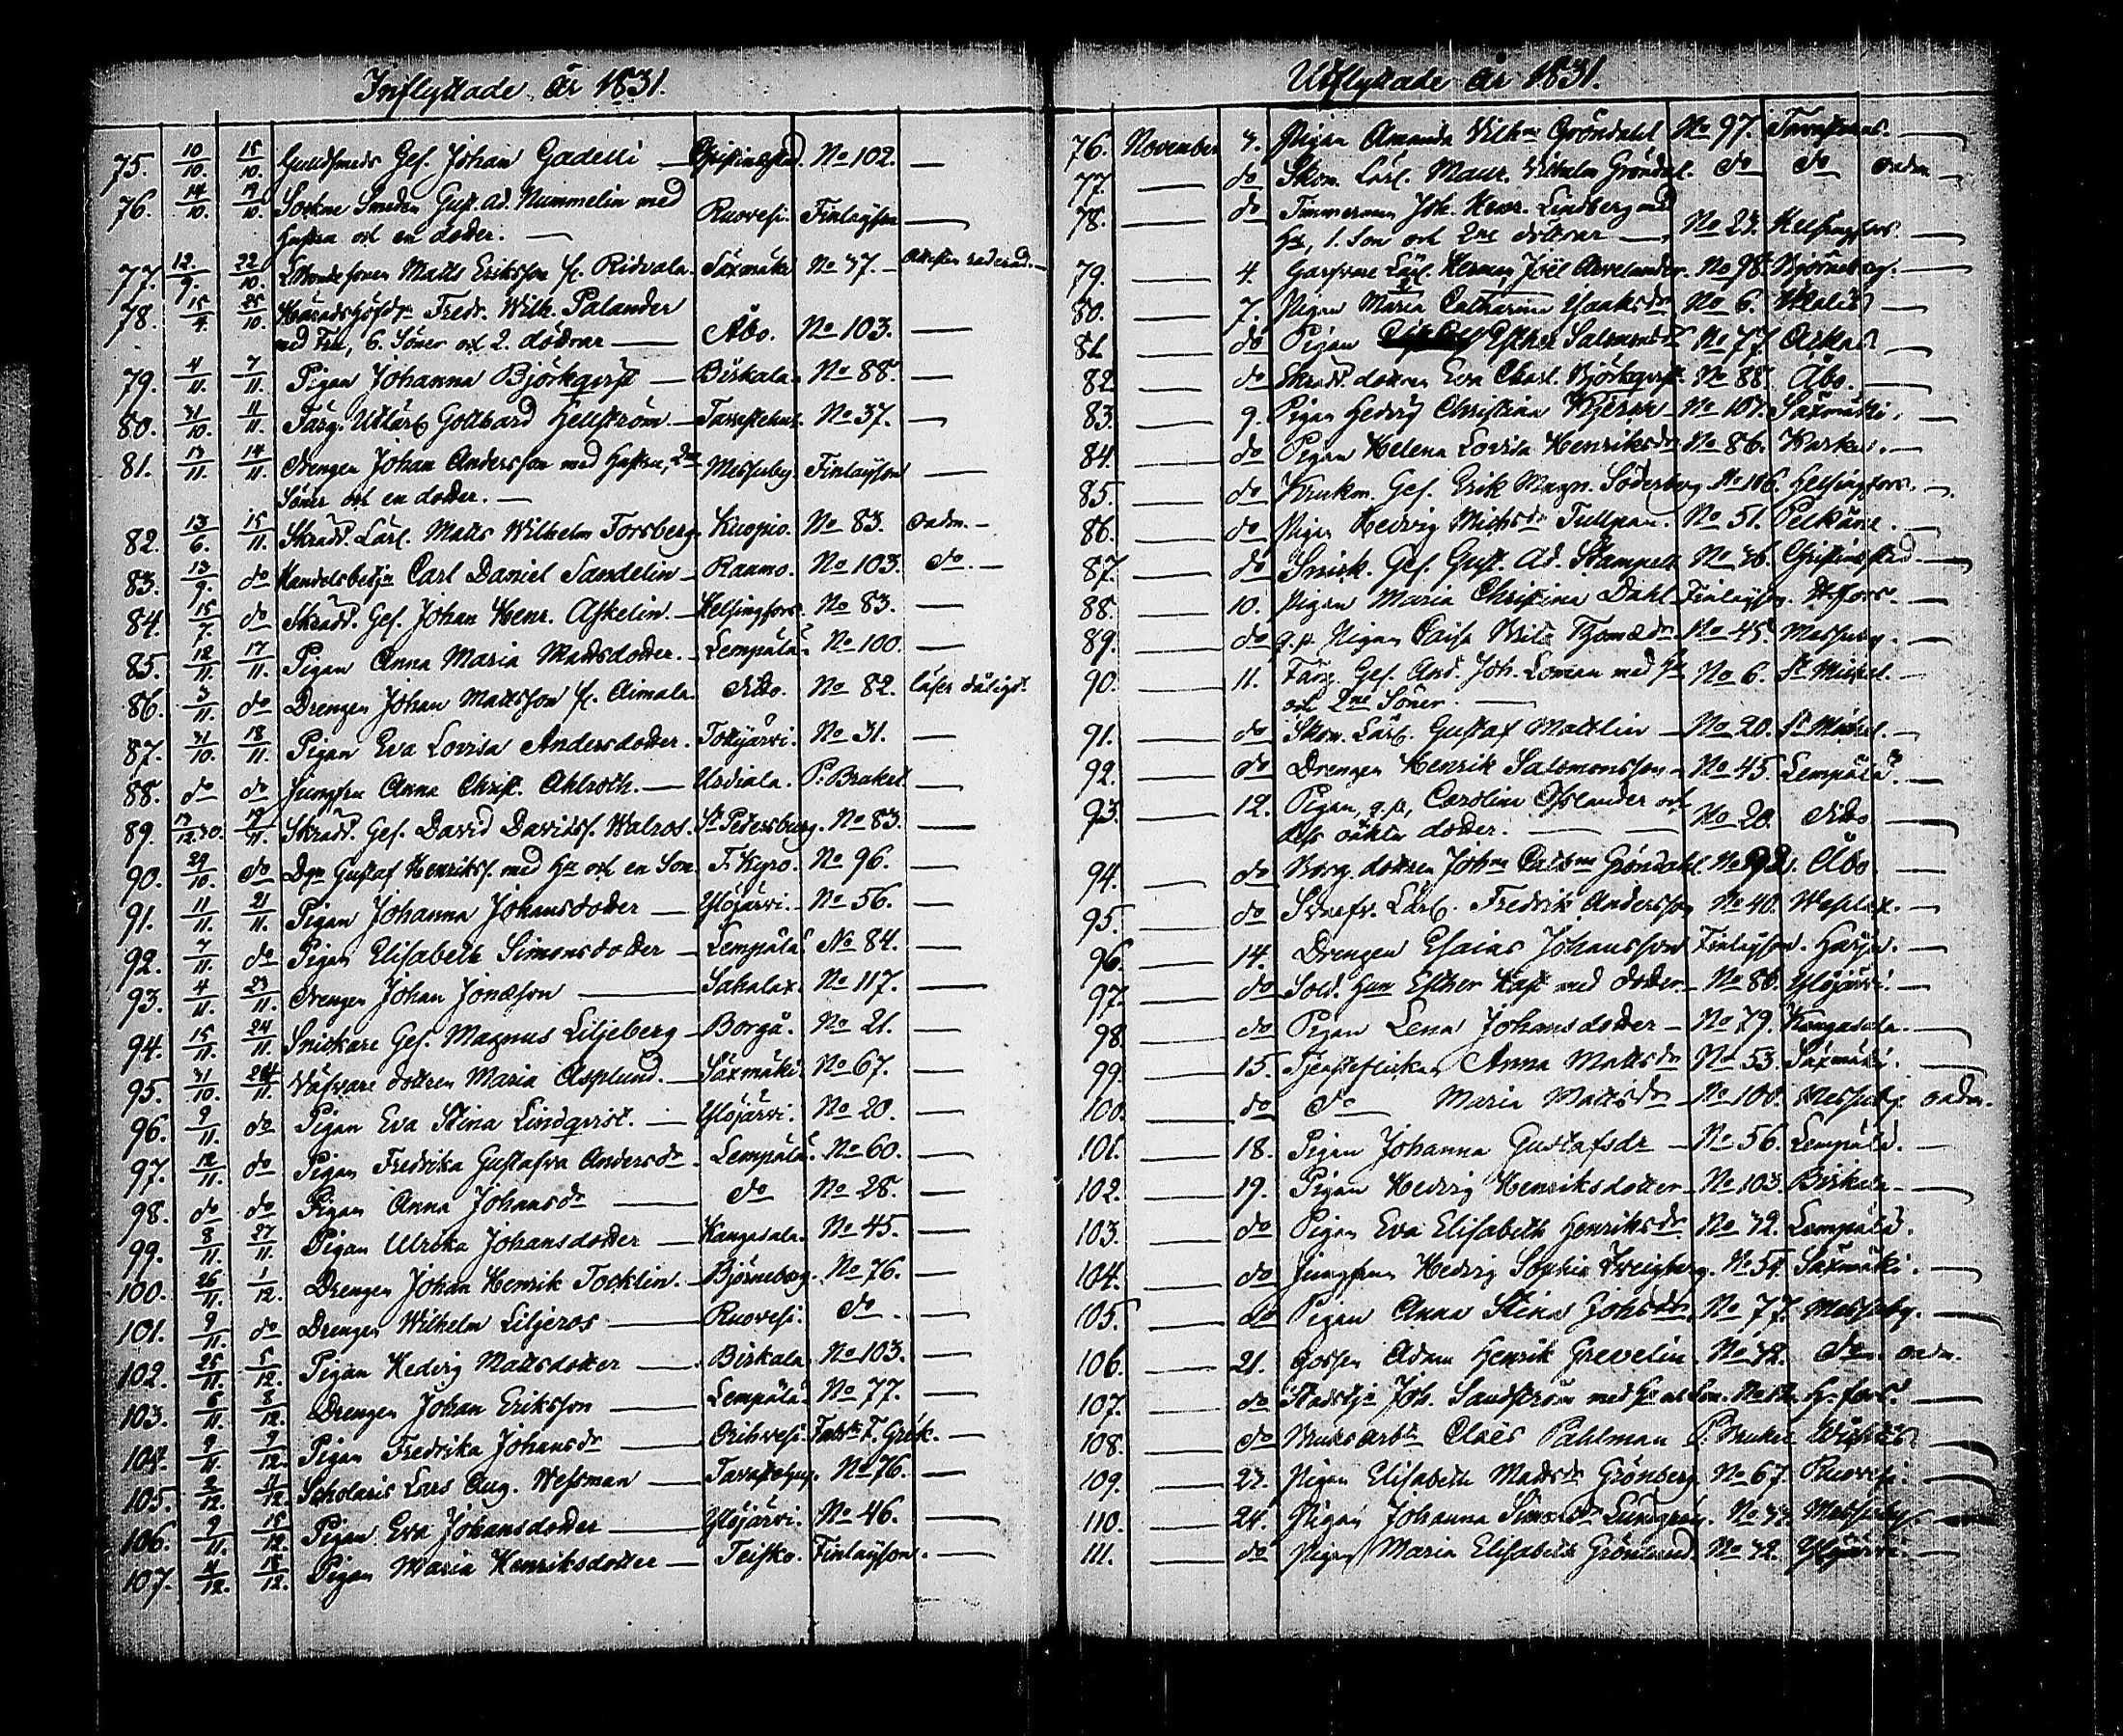 Inflyttade år 1831.
75. 10/10. 15/10. Guldsmeds Ges. Johan Gadelli — Christinestad. No 102. —
76. 14/10. 19/10. Sockne Smeden Gust. Ad. Nummelin med Ruovesi. Finlayson —
hustru och en dotter. —
77. 12./9. 22/10. Matts Eriksson fr. Ridvala. Säxmäki No 37. —
78. 15/4. 25/10. Häradshöfd. Fredr. Wilh. Palander
med Fru, 6. Söner och 2. döttrar — Åbo. No 103. —
79. 4/11. 7/11. Pigan Johanna Björkqvist — Birkala. No 88. —
80. 31/10. 11/11. Färg. Utlärl. Gotthard Hellström. — Tavastehus. No 37. —
81. 13/11. 14/11. Drengen Johan Andersson med hustru, 2ne Messuby. Finlayson —
Söner och en dotter. —
82. 13/6. 15/11. Skradd. Lärl. Matts Wilhelm Forsberg Kuopio. No 83. oadm. —
83. 13/9. do Handelsbetj. Carl Daniel Sandelin — Raumo. No 103. do. —
84. 15/7. do Skradd. Ges. Johan Henr. Askelin. — Helsingfors. No 83. —
85. 12/11. 17/11. Pigan Anna Maria Mattsdotter. — Lempälä. No 100. —
86. 3/11. do Drengen Johan Mattsson fr. Aimala. dito. No 82. läser dåligt.
87. 31/10. 18/11. Pigan Eva Lovisa Andersdotter. Tottijärvi. No 31. —
88. do do Jungfru Anna Christ. Ahlroth. — Urdiala. P. Bruket —
89. 13/12.30. 19/11. Skradd. Ges. David Davidss. Walros. St Petersburg. No 83. —
90. 29/10. do Dgn Gustaf Henrikss. med Hu och en Son T. Kyro. No 96. —
91. 11/11. 21/11. Pigan Johanna Johansdotter — Ylöjärvi. No 56. —
92. 7/11. do Pigan Elisabeth Simonsdotter — Lempälä. No 84. —
93. 4/11. 23/11. Drengen Johan Jonæson — Sahalax. No 117. —
94. 15/11. 24/11. Snickare Ges. Magnus Liljeberg — Borgå. No 21. —
95. 31/10. 24/11. Väfvare dottren Maria Asplund. — Säxmäki. No 67. —
96. 9/11. do Pigan Eva Stina Lindqvist. — Ylöjärvi. No 20. —
97. 12/11. do Pigan Fredrika Gustafva Andersdr. Lempälä. No 60. —
98. do do Pigan Anna Johansdr — do No 28. —
99. 8/11. 27/11. Pigan Ulrika Johansdotter — Kangasala. No 45. —
100. 26/11. 1/12. Drengen Johan Henrik Tocklin. — Björneborg. No 76. —
101. 9/11. do Drengen Wilhelm Liljeros — Ruovesi. do. —
102. 25/11. 5/12. Pigan Hedvig Mattsdotter — Birkala No 103. —
103. 6/11. 8/12. Drengen Johan Eriksson — Lempälä. No 77. —
104. 9/11. 9/12. Pigan Fredrika Johansdr — Orihvesi. —
105. 2/12. 11/12. Scholaris Lars Aug. Wessman — Tavastehus. No 76. —
106. 9/11. 15/12. Pigan Eva Johansdotter — Ylöjärvi. No 46. —
107. 4/12. 18/12. Pigan Maria Henriksdotter — Teisko. Finlayson. —
Utflyttade år 1831.
76. November 3. Pigan Amanda Vilhna Gröndahl No 97. Tavastehus. —
77. — do Skom. Lärl. Maur. Vilhelm Gröndal. do do oadm —
78. — do Timmerman Joh. Henr. Lindberg med
Hu, 1. Son och 2ne döttrar — No 23. Helsingfors. —
79. — 4. Garfvare Lärl. Herman Joël No 98. Björneborg. —
80. — 7. Pigan Maria Catharina Isaksdr No 6. —
81. — do Pigan Esther Salomonsdr No 77. —
82. — do Skradd. dottren Eva Charl. Björkqvist. No 88. Åbo. —
83. — 9. Pigan Hedvig Christina No 107. Säxmäki. —
84. — do Pigan Helena Lovisa Henriksdr No 86. Karkku. —
85. — do Krukm. Ges. Erik Magn. Söderberg No 116. Helsingfors. —
86. — do Pigan Hedvig Michsdr Tullpan. No 51. Pelkäne. —
87. — do Snick. Ges. Gust. Ad. No 36. Christinestad. —
88. — 10. Pigan Maria Christina Dahl Finlayson. H.fors. —
89. — do q.p. Pigan Caisa No 45. Messuby. —
90. — 11. Färg. Ges. And. Joh. Loman med Hu No 6. St Michel. —
och 2ne Söner. —
91. — do Skom. Lärl. Gustaf Mattlin — No 20. St Michel. —
92. — do Drengen Henrik Salomonsson — No 45. Lempälä. —
93. — 12. Pigan, q.p., Carolina och
dess oäkta dotter. — No 20. dito —
94. — do Borg. dottren Johna Gröndahl. No 92. Åbo —
95. — do Lärl. Fredrik Andersson No 40. Wesilax. —
96. — 14. Drengen Esaias Johansson Finlayson. Harju. —
97. — do Sold. Hun Esther Kast med dotter. — No 86. Ylöjärvi. —
98. — do Pigan Lena Johansdotter — No 79. Kangasala. —
99. — 15. Tjensteflickan Anna Mattsdr No 53. Säxmäki. —
100. — do do Maria Mattsdr — No 100. Messuby. oadm.
101. — 18. Pigan Johanna Gustafsdr — No 56. Lempälä. —
102. — 19. Pigan Hedvig Henriksdotter — No 103. Birkala —
103. — do Pigan Eva Elisabeth Henriksdr. No 72. Lempälä. —
104. — do Jungfrun Hedvig Sophia Zweigberg. No 54. Säxmäki. —
105. — do Pigan Anna Stina Johsdr. No 77. Messuby. —
106. — 21. Gossen Adam Henrik Grevelin. No 72. do. oadm.
107. — do Joh. Sandström med Hu och Son. No 12. H.fors. —
108. — do Bruksarb. Claës Pahlman P. Bruket —
109. — 23. Pigan Elisabeth Mattsdr Grönberg. No 67. Ruovesi. —
110. — 24. Pigan Johanna Simonsdr Lundgren. Messuby. —
111. — do Pigan Maria Elisabeth Grönlund. No 72. Ylöjärvi. —